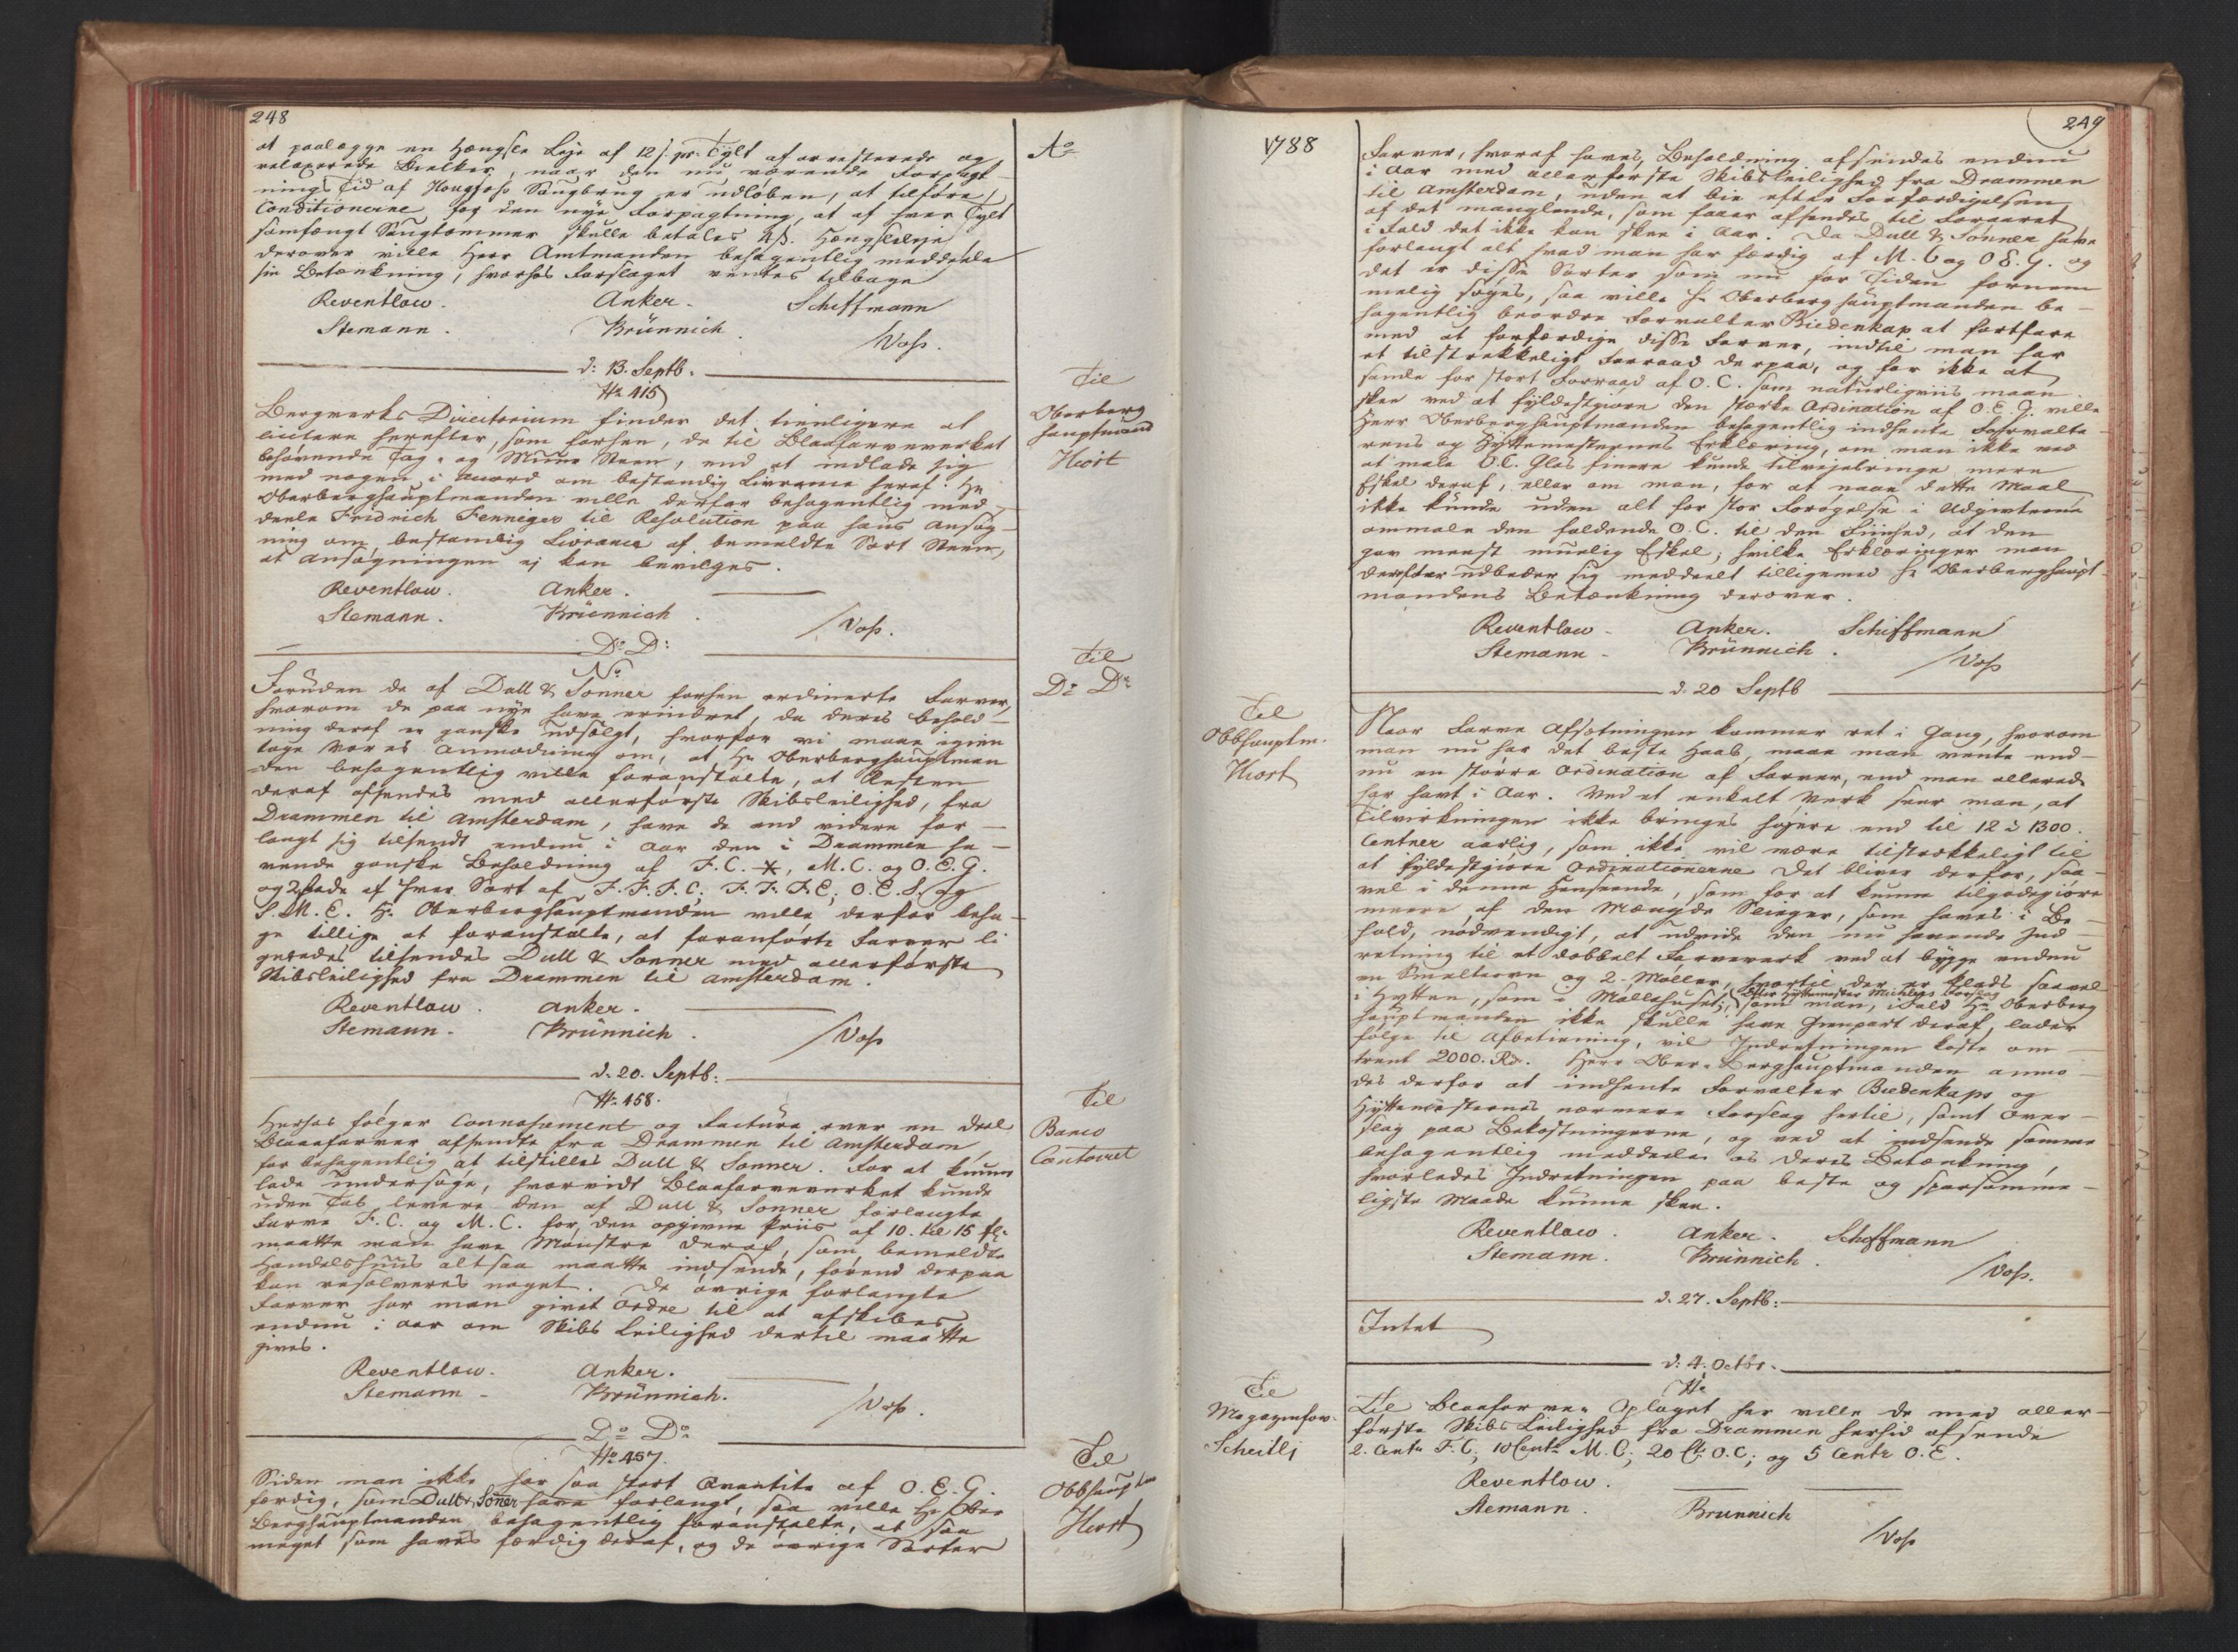 248
at paalægge en Hængsle Leje af 12 s. pr. Tylt af arresterede og
relaxerede Bielker, naar den nu værende Forpagt-
nings Tid af Hougfoss Saugbrug er udløben, at tilføre
Conditionerne for den nye Forpagtning, at af hver Tylt
saugtømmer skulle betales Hængselleje
derover ville Herr Amtmanden behagentlig meddeele
sin Betænkning, hvorhos Forslaget ventes tilbage
Reventlow. Anker. Schiffmann
Stemann. Brünnich. /Voss.
d: 13. Septb.
No 415
Bergverks Directorium finder det tienligere at
licitere herefter, som forhen, de til Blaafarveverket
behøvende Tag- og Muur Steen, end at indlade sig
med nogen i Accord om bestandig Livrance heraf. Hr
Oberberghauptmanden ville derfor behagentlig med-
deele Fridrich Fenniger til Resolution paa hans Ansøg-
ning om bestandig Livrance af bemeldte Sort Steen,
at Ansøgningen ej kan bevilges.
Reventlow. Anker.
Stemann. Brünnich. /Voss.
Do D:
No
Foruden de af Dull & Sønner forhen ordinerte Farver,
hvorom de paa nye have erindret, da deres Behold-
ning deraf er ganske udsolgt, hvorfor vi maae igien
tage vores Anmodning om, at Hr Oberberghauptman-
den behagentlig ville foranstalte, at Resten
deraf afsendes med allerførste Skibsleilighed, fra
Drammen til Amsterdam, have de end videre for-
langt sig tilsendt endnu i Aar den i Drammen ha-
vende ganske Beholdning af F.C. X, M.C. og O.E.G.
og 2 Fade af hver Sort af F.F.F.C; F.F.F.E; O.E.S. og
S.M.E. Hr Oberberghauptmanden ville derfor beha-
ge tillige at foranstalte, at foranførte Farver li-
geledes tilsendes Dull & Sønner med allerførste
Skibsleilighed fra Drammen til Amsterdam.
Reventlow. Anker.
Stemann. Brünnich. /Voss
d. 20. Septb:
No 458.
Herhos følger Connosement og Factura over en deel
Blaafarver afsendte fra Drammen til Amsterdam,
for behagentlig at tilstilles Dull & Sønner. For at kunne
lade undersøge, hvorvidt Blaafarveverket kunde
uden Tab levere den af Dull & Sønner forlangte
Farve F.C. og M.C. for den opgivne Priis af 10. til 15 fl.
maatte man have Mønstre deraf, som bemeldte
Handelshuus altsaa maatte indsende, førend derpaa
kan resolveres noget. De øvrige forlangte
Farver har man givet Ordre til at afskibes
endnu i Aar om Skibs Leilighed dertil maatte
gives.
Reventlow. Anker.
Stemann. Brünnich. /Voss.
Do Do
No 457.
Siden man ikke har saa stort Qvantite af O.E.G.
færdig, som Dull & Søner have forlangt, saa ville Hr Ober
Berghauptmanden behagentlig foranstalte, at saa
meget som haves færdig deraf, og de øvrige Sorter
Ao
Til
Oberberg
hauptmand
Hiort
Til
Do Do
Til
Banco
Contoiret
Til
Obbhauptm
Hiort
1788
Til
Obbhauptm.
Hiort
Til
Magazinforv.
Scheitlj
249
Farver, hvoraf haves Beholdning afsendes endnu
i Aar med allerførste Skibsleilighed fra Drammen
til Amsterdam, uden at bie efter Forfærdigelsen
af det manglende, som faaer afsendes til Foraaret
i Fald det ikke kan skee i Aar. Da Dull & Sønner have
forlangt alt hvad man har færdig af M.C og O.E.G. og
det er disse Sorter som nu for Tiden fornem-
melig søges, saa ville Hr Oberberghauptmanden be-
hagentlig beordre Forvalter Biedenkap at fortfare
med at forfærdige disse Farver, indtil man har
et tilstrækkeligt Forraad derpaa, og for ikke at
samle for stort Forraad af O.C. som naturligviis maae
skee ved at fyldestgiøre den stærke Ordination af O.E.G. ville
Herr Oberberghauptmanden behagentlig indhente Forvalte-
rens og Hyttemesternes Erklæring, om man ikke ved
at male O.C. Glas finere kunde tilvejebringe mere
Eskel deraf, eller om man, for at naae dette Maal
ikke kunde uden alt for stor Forøgelse i Udgivterne
ommale den faldende O.C. til den Finhed, at den
gav meest muelig Eskel; hvilke Erklæringer man
derefter udbeder sig meddeelt tilligemed Hr Oberberghaupt-
mandens Betænkning derover.
Reventlow. Anker. Schiffmann
Stemann. Brünnich. /Voss
d. 20 Septb
Naar Farve Afsætningen kommer ret i Gang, hvorom
man nu har det beste Haab, maae man vente end-
nu en større Ordination af Farver, end man allerede
har havt i Aar. Ved et enkelt Verk seer man, at
Tilvirkningen ikke bringes højere end til 12 à 1300.
Centner aarlig, som ikke vil være tilstrækkeligt til
at fyldestgiøre Ordinationerne. Det bliver derfor, saa-
vel i denne Henseende, som for at kunne tilgodegiøre
meere af den Mængde Slieger, som haves i Be-
hold, nødvendigt, at udvide den nu havende Ind-
retning til et dobbelt Farveverk ved at bygge endnu
en Smelteovn og 2 Møller, hvortil der er Plads saavel
i Hytten, som i Møllehuset; efter Hyttemester Michleys Forslag som man, ifald Hr Oberberg
hauptmanden ikke skulle have Gienpart deraf, lader
følge til Afbetiening, vil Indretningen koste om-
trent 2000 Rd. Herr Ober-Berghauptmanden anmo-
des derfor at indhente Forvalter Biedenkaps og
Hyttemesternes nærmere Forslag hertil, samt Over-
slag paa Bekostningerne, og ved at indsende samme
behagentlig meddeele os Deres Betænkning,
hvorledes Indretningen paa beste og sparsomme-
ligste Maade kunne skee.
Reventlow. Anker. Schiffmann
Stemann. Brünnich. /Voss.
d. 27. Septb:
Intet
d: 4. Octbr.
No
Til Blaafarve Oplaget her ville De med aller-
første Skibs Leilighed fra Drammen herhid afsende
2. Centr F.C; 10 Centr M.C; 20 Ctr O.C; og 5 Centr O.E.
Reventlow.
Stemann. Brünnich
/Voss